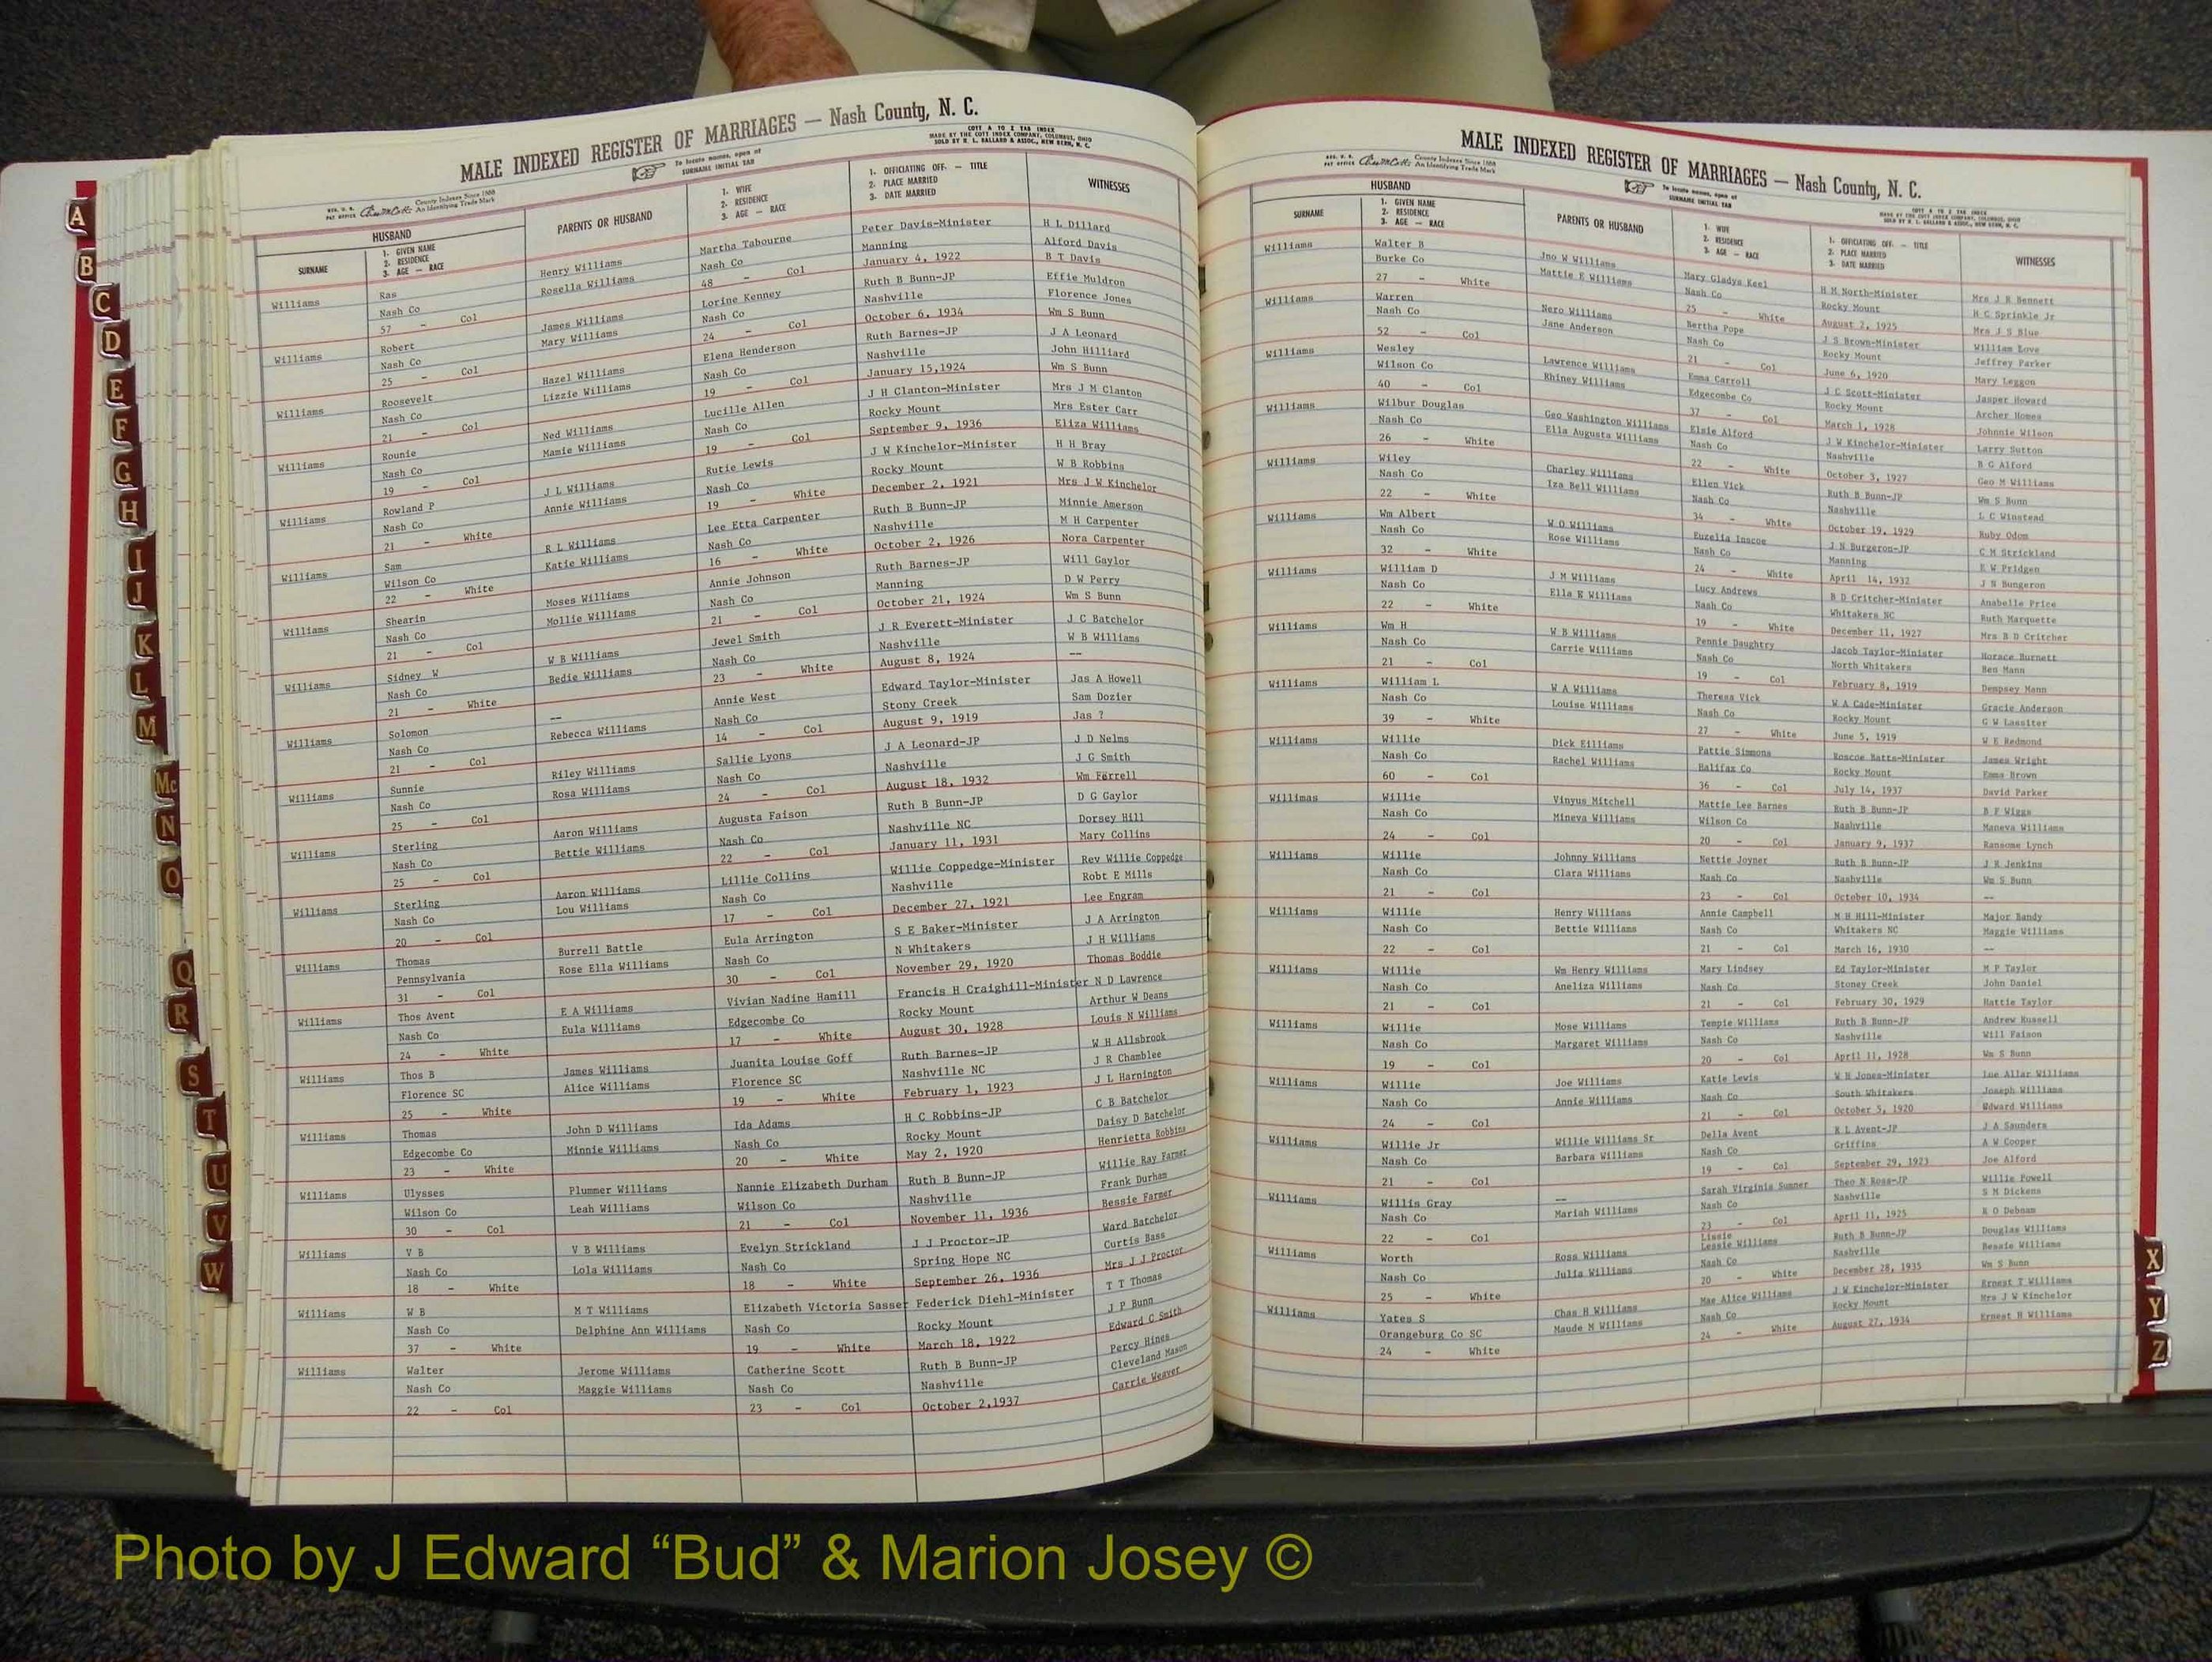 MALE INDEXED REGISTER OF MARRIAGES — Nash County, N. C.
To locate names, open at
SURNAME INITIAL TAB
COTT A TO Z TAB INDEX
MADE BY THE COTT INDEX COMPANY, COLUMBUS, OHIO
SOLD BY R. L. BALLARD & ASSOC., NEW BERN, N. C.
County Indexes Since 1888
An Identifying Trade Mark
HUSBAND
SURNAME
1. GIVEN NAME
2. RESIDENCE
3. AGE — RACE
PARENTS OR HUSBAND
1. WIFE
2. RESIDENCE
3. AGE — RACE
1. OFFICIATING OFF. — TITLE
2. PLACE MARRIED
3. DATE MARRIED
WITNESSES
Williams Ras Henry Williams Martha Tabourne Peter Davis-Minister H L Dillard
Nash Co Rosella Williams Nash Co Manning Alford Davis
57 - Col 48 - Col January 4, 1922 B T Davis
Williams Robert James Williams Lorine Kenney Ruth B Bunn-JP Effie Muldron
Nash Co Mary Williams Nash Co Nashville Florence Jones
25 - Col 24 - Col October 6, 1934 Wm S Bunn
Williams Roosevelt Hazel Williams Elena Henderson Ruth Barnes-JP J A Leonard
Nash Co Lizzie Williams Nash Co Nashville John Hilliard
21 - Col 19 - Col January 15,1924 Wm S Bunn
Williams Rounie Ned Williams Lucille Allen J H Clanton-Minister Mrs J M Clanton
Nash Co Mamie Williams Nash Co Rocky Mount Mrs Ester Carr
19 - Col 19 - Col September 9, 1936 Eliza Williams
Williams Rowland P J L Williams Rutie Lewis J W Kinchelor-Minister H H Bray
Nash Co Annie Williams Nash Co Rocky Mount W B Robbins
21 - White 19 - White December 2, 1921 Mrs J W Kinchelor
Williams Sam R L Williams Lee Etta Carpenter Ruth B Bunn-JP Minnie Amerson
Wilson Co Katie Williams Nash Co Nashville M H Carpenter
22 - White 16 - White October 2, 1926 Nora Carpenter
Williams Shearin Moses Williams Annie Johnson Ruth Barnes-JP Will Gaylor
Nash Co Mollie Williams Nash Co Manning D W Perry
21 - Col 21 - Col October 21, 1924 Wm S Bunn
Williams Sidney W W B Williams Jewel Smith J R Everett-Minister J C Batchelor
Nash Co Bedie Williams Nash Co Nashville W B Williams
21 - White 23 - White August 8, 1924 --
Williams Solomon -- Annie West Edward Taylor-Minister Jas A Howell
Nash Co Rebecca Williams Nash Co Stony Creek Sam Dozier
21 - Col 14 - Col August 9, 1919 Jas ?
Williams Sunnie Riley Williams Sallie Lyons J A Leonard-JP J D Nelms
Nash Co Rosa Williams Nash Co Nashville J G Smith
25 - Col 24 - Col August 18, 1932 Wm Ferrell
Williams Sterling Aaron Williams Augusta Faison Ruth B Bunn-JP D G Gaylor
Nash Co Bettie Williams Nash Co Nashville NC Dorsey Hill
25 - Col 22 - Col January 11, 1931 Mary Collins
Williams Sterling Aaron Williams Lillie Collins Willie Coppedge-Minister Rev Willie Coppedge
Nash Co Lou Williams Nash Co Nashville Robt E Mills
20 - Col 17 - Col December 27, 1921 Lee Engram
Williams Thomas Burrell Battle Eula Arrington S E Baker-Minister J A Arrington
Pennsylvania Rose Ella Williams Nash Co N Whitakers J H Williams
31 - Col 30 - Col November 29, 1920 Thomas Boddie
Williams Thos Avent E A Williams Vivian Nadine Hamill Francis H Craighill-Minister N D Lawrence
Nash Co Eula Williams Edgecombe Co Rocky Mount Arthur W Deans
24 - White 17 - White August 30, 1928 Louis N Williams
Williams Thos B James Williams Juanita Louise Goff Ruth Barnes-JP W H Allsbrook
Florence SC Alice Williams Florence SC Nashville NC J R Chamblee
25 - White 19 - White February 1, 1923 J L Harnington
Williams Thomas John D Williams Ida Adams H C Robbins-JP C B Batchelor
Edgecombe Co Minnie Williams Nash Co Rocky Mount Daisy D Batchelor
23 - White 20 - White May 2, 1920 Henrietta Robbins
Williams Ulysses Plummer Williams Nannie Elizabeth Durham Ruth B Bunn-JP Willie Ray Farmer
Wilson Co Leah Williams Wilson Co Nashville Frank Durham
30 - Col 21 - Col November 11, 1936 Bessie Farmer
Williams V B V B Williams Evelyn Strickland J J Proctor-JP Ward Batchelor
Nash Co Lola Williams Nash Co Spring Hope NC Curtis Bass
18 - White 18 - White September 26, 1936 Mrs J J Proctor
Williams W B M T Williams Elizabeth Victoria Sasser Federick Diehl-Minister T T Thomas
Nash Co Delphine Ann Williams Nash Co Rocky Mount J P Bunn
37 - White 19 - White March 18, 1922 Edward C Smith
Williams Walter Jerome Williams Catherine Scott Ruth B Bunn-JP Percy Hines
Nash Co Maggie Williams Nash Co Nashville Cleveland Mason
22 - Col 23 - Col October 2,1937 Carrie Weaver
MALE INDEXED REGISTER OF MARRIAGES — Nash County, N. C.
To locate names, open at
SURNAME INITIAL TAB
County Indexes Since 1888
An Identifying Trade Mark
HUSBAND
SURNAME
1. GIVEN NAME
2. RESIDENCE
3. AGE — RACE
PARENTS OR HUSBAND
1. WIFE
2. RESIDENCE
3. AGE — RACE
1. OFFICIATING OFF. — TITLE
2. PLACE MARRIED
3. DATE MARRIED
WITNESSES
Williams Walter B Jno W Williams Mary Gladys Keel H M North-Minister Mrs J R Bennett
Burke Co Mattie E Williams Nash Co Rocky Mount H C Sprinkle Jr
27 - White 25 - White August 2, 1925 Mrs J S Blue
Williams Warren Nero Williams Bertha Pope J S Brown-Minister William Love
Nash Co Jane Anderson Nash Co Rocky Mount Jeffrey Parker
52 - Col 21 - Col June 6, 1920 Mary Leggon
Williams Wesley Lawrence Williams Emma Carroll J C Scott-Minister Jasper Howard
Wilson Co Rhiney Williams Edgecombe Co Rocky Mount Archer Homes
40 - Col 37 - Col March 1, 1928 Johnnie Wilson
Williams Wilbur Douglas Geo Washington Williams Elsie Alford J W Kinchelor-Minister Larry Sutton
Nash Co Ella Augusta Williams Nash Co Nashville B G Alford
26 - White 22 - White October 3, 1927 Geo M Williams
Williams Wiley Charley Williams Ellen Vick Ruth B Bunn-JP Wm S Bunn
Nash Co Iza Bell Williams Nash Co Nashville L C Winstead
22 - White 34 - White October 19, 1929 Ruby Odom
Williams Wm Albert W O Williams Euzelia Inscoe J N Burgeron-JP C M Strickland
Nash Co Rose Williams Nash Co Manning E W Pridgen
32 - White 24 - White April 14, 1932 J N Bungeron
Williams William D J M Williams Lucy Andrews B D Critcher-Minister Anabelle Price
Nash Co Ella E Williams Nash Co Whitakers NC Ruth Marquette
22 - White 19 - White December 11, 1927 Mrs B D Critcher
Williams Wm H W B Williams Pennie Daughtry Jacob Taylor-Minister Horace Burnett
Nash Co Carrie Williams Nash Co North Whitakers Ben Mann
21 - Col 19 - Col February 8, 1919 Dempsey Mann
Williams William L W A Williams Theresa Vick W A Cade-Minister Gracie Anderson
Nash Co Louise Williams Nash Co Rocky Mount G W Lassiter
39 - White 27 - White June 5, 1919 W E Redmond
Williams Willie Dick Eilliams Pattie Simmons Roscoe Batts-Minister James Wright
Nash Co Rachel Williams Halifax Co Rocky Mount Emma Brown
60 - Col 36 - Col July 14, 1937 David Parker
Willimas Willie Vinyus Mitchell Mattie Lee Barnes Ruth B Bunn-JP B F Wiggs
Nash Co Mineva Williams Wilson Co Nashville Maneva Williams
24 - Col 20 - Col January 9, 1937 Ransome Lynch
Williams Willie Johnny Williams Nettie Joyner Ruth B Bunn-JP J R Jenkins
Nash Co Clara Williams Nash Co Nashville Wm S Bunn
21 - Col 23 - Col October 10, 1934 --
Williams Willie Henry Williams Annie Campbell M H Hill-Minister Major Bandy
Nash Co Bettie Williams Nash Co Whitakers NC Maggie Williams
22 - Col 21 - Col March 16, 1930 --
Williams Willie Wm Henry Williams Mary Lindsey Ed Taylor-Minister M P Taylor
Nash Co Aneliza Williams Nash Co Stoney Creek John Daniel
21 - Col 21 - Col February 30, 1929 Hattie Taylor
Williams Willie Mose Williams Tempie Williams Ruth B Bunn-JP Andrew Russell
Nash Co Margaret Williams Nash Co Nashville Will Faison
19 - Col 20 - Col April 11, 1928 Wm S Bunn
Williams Willie Joe Williams Katie Lewis W H Jones-Minister Lue Allar Williams
Nash Co Annie Williams Nash Co South Whitakers Joseph Williams
24 - Col 21 - Col October 5, 1920 Edward Williams
Williams Willie Jr Willie Williams Sr Della Avent R L Avent-JP J A Saunders
Nash Co Barbara Williams Nash Co Griffins A W Cooper
21 - Col 19 - Col September 29, 1923 Joe Alford
Williams Willis Gray -- Sarah Virginia Sumner Theo N Ross-JP Willie Powell
Nash Co Mariah Williams Nash Co Nashville S M Dickens
22 - Col 23 - Col April 11, 1925 R O Debnam
Williams Worth Ross Williams Lissie Lessie Williams Ruth B Bunn-JP Douglas Williams
Nash Co Julia Williams Nash Co Nashville Bessie Williams
25 - White 20 - White December 28, 1935 Wm S Bunn
Williams Yates S Chas H Williams Mae Alice Williams J W Kinchelor-Minister Ernest T Williams
Orangeburg Co SC Maude M Williams Nash Co Rocky Mount Mrs J W Kinchelor
24 - White 24 - White August 27, 1934 Ernest H Williams
A
B
C
D
E
F
G
H
I
J
K
L
M
Mc
N
O
Q
R
S
T
U
V
W
X
Y
Z
Photo by J Edward “Bud” & Marion Josey ©